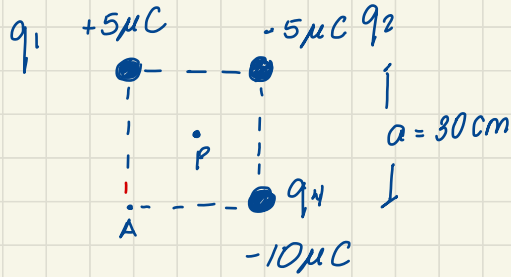 q₁ +5μC -5μC q₂
a = 30 cm
P
q₄
A
-10μC